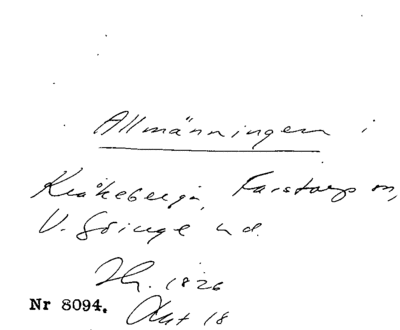 Allmänningen i
Kråkeberga, Farstorps sn,
V. Göinge hd.
Th. 1826
Nr 8094. Akt 18